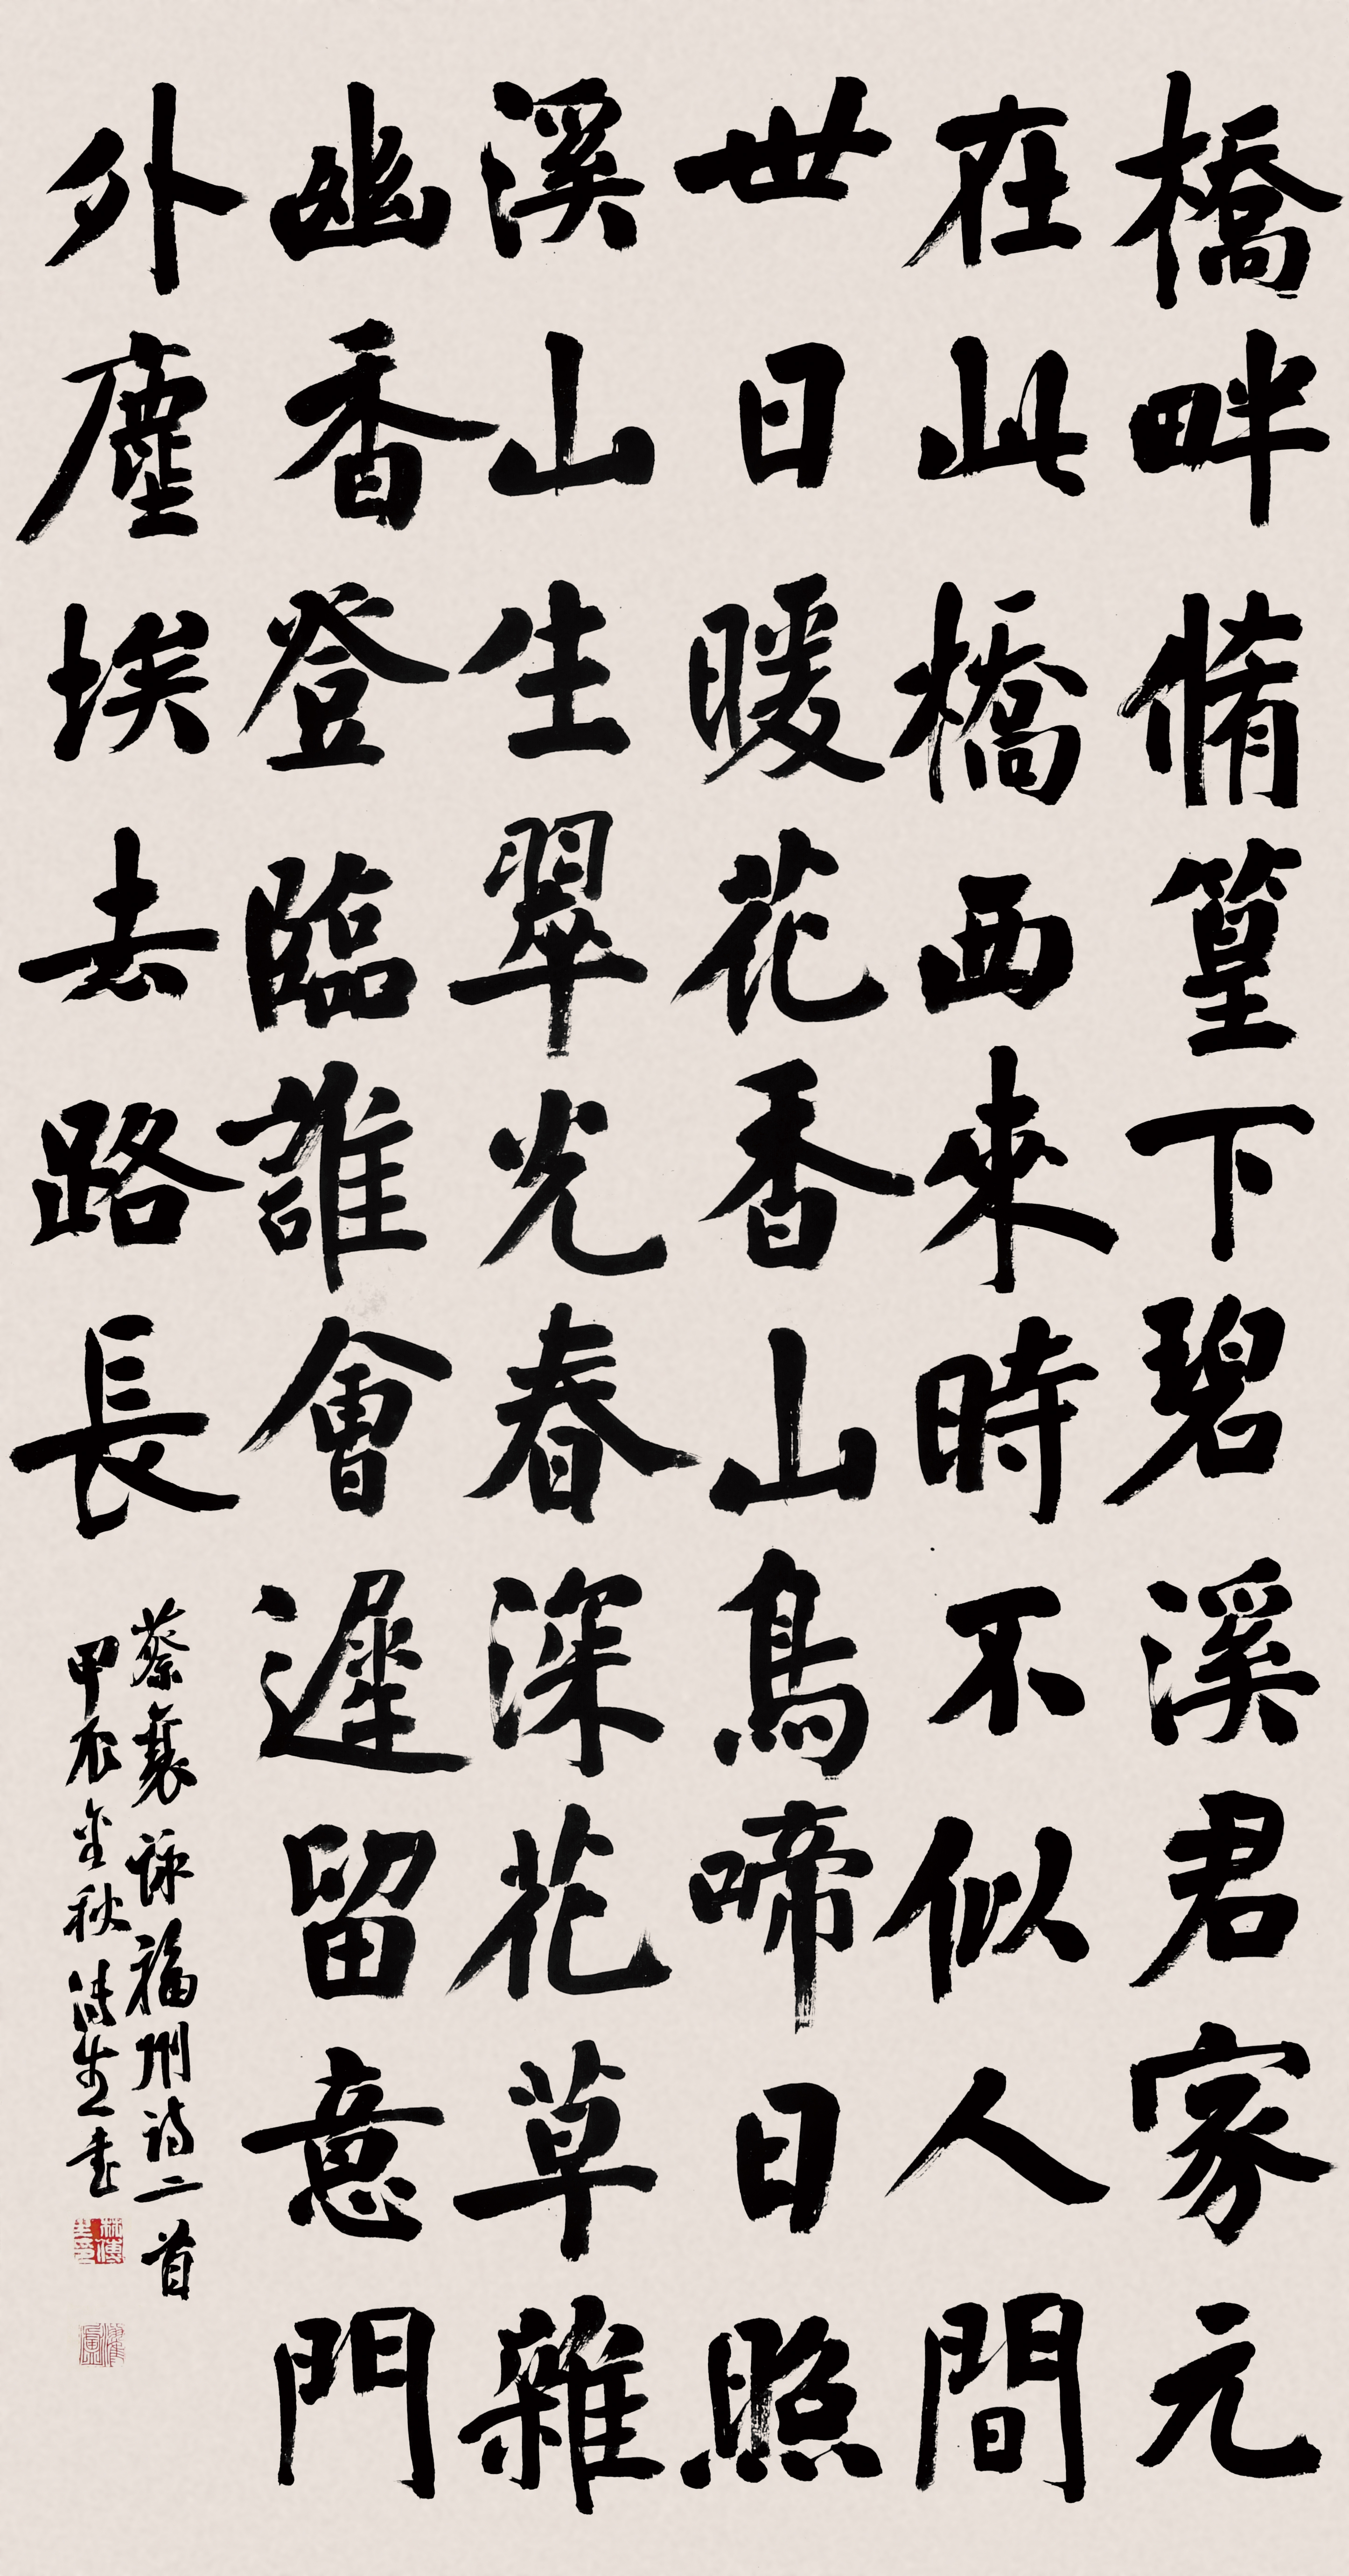 橋畔脩篁下碧溪君家元
在此橋西來時不似人間
世日暖花香山鳥啼日照
溪山生翠光春深花草雜
幽香登臨誰會遲留意門
外塵埃去路長
蔡襄詠福州詩二首
甲辰金秋傳生書
林傳生印